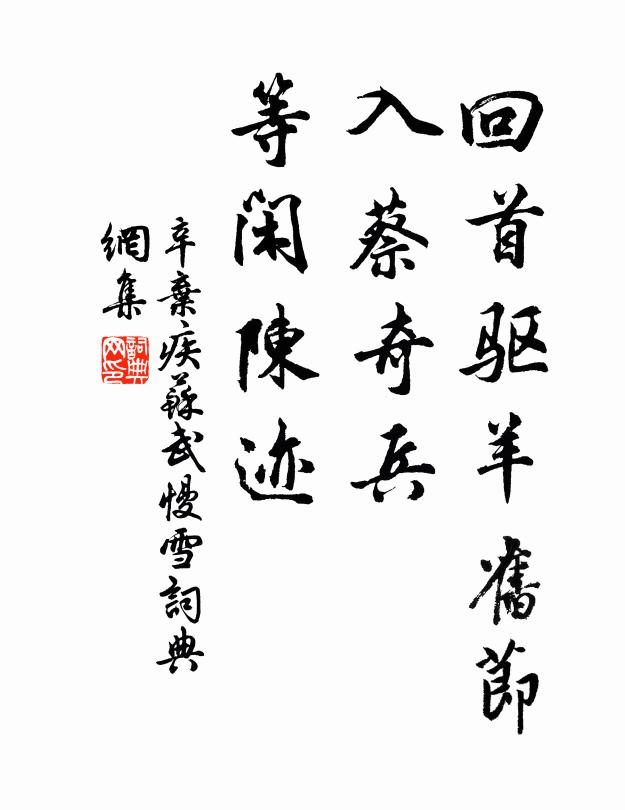 回首驱羊舊節
入蔡奇兵
等閑陳迹
辛棄疾蘇武慢雪詞典
網集
詞典網印